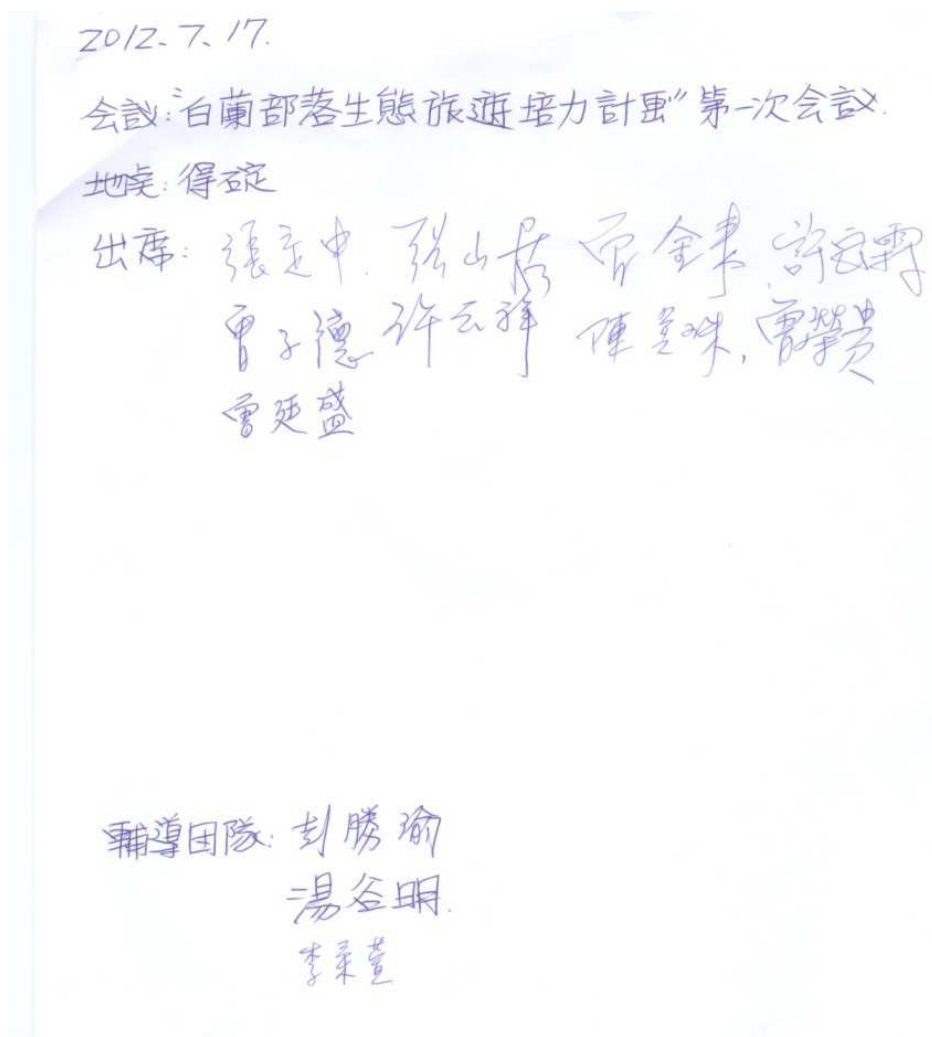 2012、7、17.
会议:"白蘭部落生態旅遊培力計画"第一次会议.
地点:得碇
出席: 張定中. 張山居 曾金 許雲霖
曾子德 许云祥 陳美珠, 曾榮貴
曾延盛
輔導团隊: 彭勝瑜
湯谷明.
李采萱